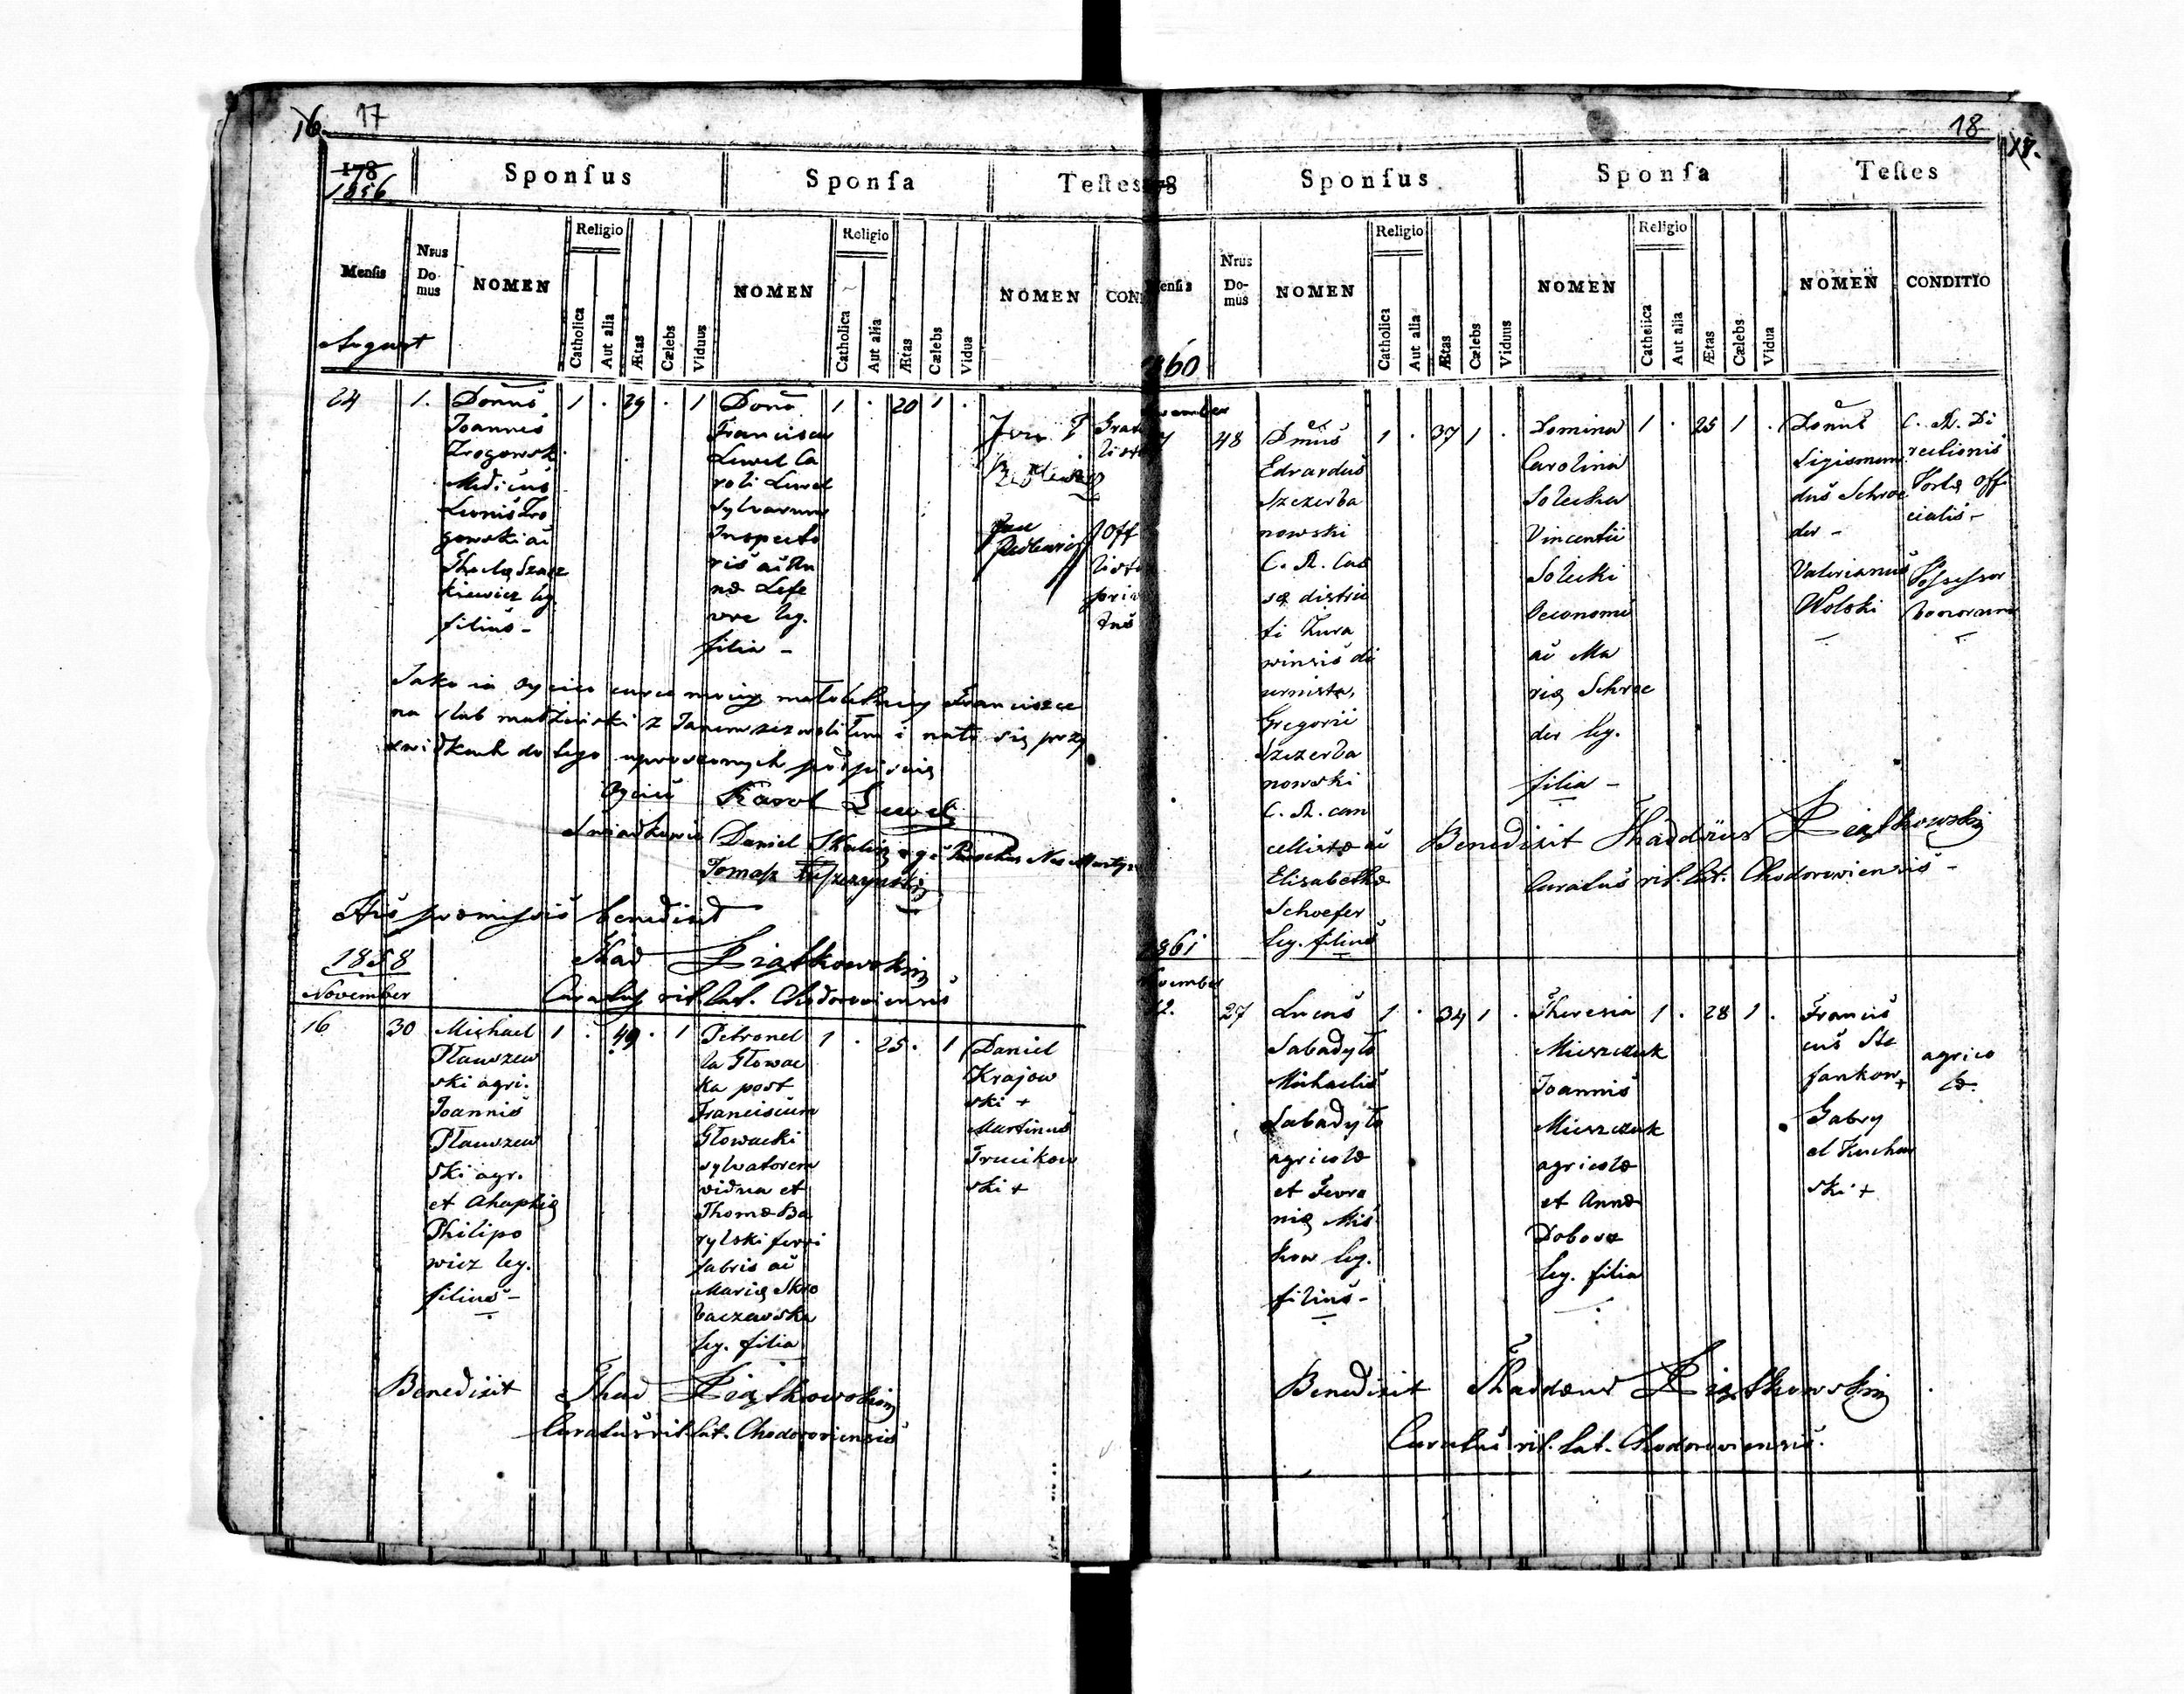 16. 17
178
1856
Sponsus
Sponsa
Testes
Mensis
Nrus Domus
NOMEN
Religio
Catholica
Aut alia
Ætas
Cælebs
Viduus
NOMEN
Religio
Catholica
Aut alia
Ætas
Cælebs
Vidua
NOMEN
CON
August
24
1.
Domus
Joannes
Zrogowsk
Medicus
Leonis Zro
gowski ac
Theclę Szacz
kiewicz leg.
filius -
1 . 29 . 1
Dona
Francisca
Luwel Ca
roli Luwel
Sylvarum
Inspecto
ris ac An
næ Lefe
vre leg.
filia -
1 . 20 1 .
Jako
Oyciec
Franciszce
na ślub małżeński z Janem zezwoliłem i na to się przy
świadkach do tego uproszonych podpisuię
Oyciec Karol Luwel
Świadkowie Daniel
Tomasz
His præmissis benedixit
Thad Piątkowski
Curatus rit. lat. Chodoroviensis
1858
November
16
30
Michael
Pławszew
ski agri.
Joannis
Pławszew
ski agr.
et Ahaphię
Philipo
wicz leg.
filius -
1 . 49 . 1
Petronel
la Głowac
ka post
Franciscum
Głowacki
sylvatorem
vidua et
Thomæ Ba
rylski ferri
fabris ac
Marię Skro
baczewska
leg. filia
1 . 25 . 1
Daniel
Krajow
ski +
Martinus
Trucikow
ski +
Benedixit Thad Piątkowski
Curatus rit. lat. Chodoroviensis
18
Sponsus
Sponsa
Testes
Nrus Domus
NOMEN
Religio
Catholica
Aut alia
Ætas
Cælebs
Viduus
NOMEN
Religio
Catholica
Aut alia
Ætas
Cælebs
Vidua
NOMEN
CONDITIO
860
48
Dmus
Edvardus
Szczerba
nowski
C. R. Cas
sę distric
ti Żura
winsis di
urnista,
Gregorii
Szczerba
nowski
C. R. can
cellistæ ac
Elisabethæ
Schoefer
leg. filius
1 . 37 1 .
Domina
Carolina
Solecka
Vincentii
Solecki
Oeconomi
ac Ma
rię Schroe
der leg.
filia -
1 . 25 1 .
Domus
Sigismun
dus Schroe
der -
Valerianus
Wolski
C. R. Di
rectionis
Portę Offi
cialis -
Possessor
bonorum
Benedixit Thaddæus Piątkowski
Curatus rit. lat. Chodoroviensis -
861
November
12.
27
Lucas
Sabadyło
Michaelis
Sabadyło
agricolæ
et Fevro
nię Mis
kow leg.
filius -
1 . 34 1 .
Theresia
Mieszczuk
Joannis
Mieszczuk
agricolæ
et Annæ
Dobosz
leg. filia
1 . 28 1 .
Francis
cus Ste
fankow +
Gabry
el Kuchar
ski +
agrico
læ
Benedixit Thaddæus Piątkowski
Curatus rit. lat. Chodoroviensis.